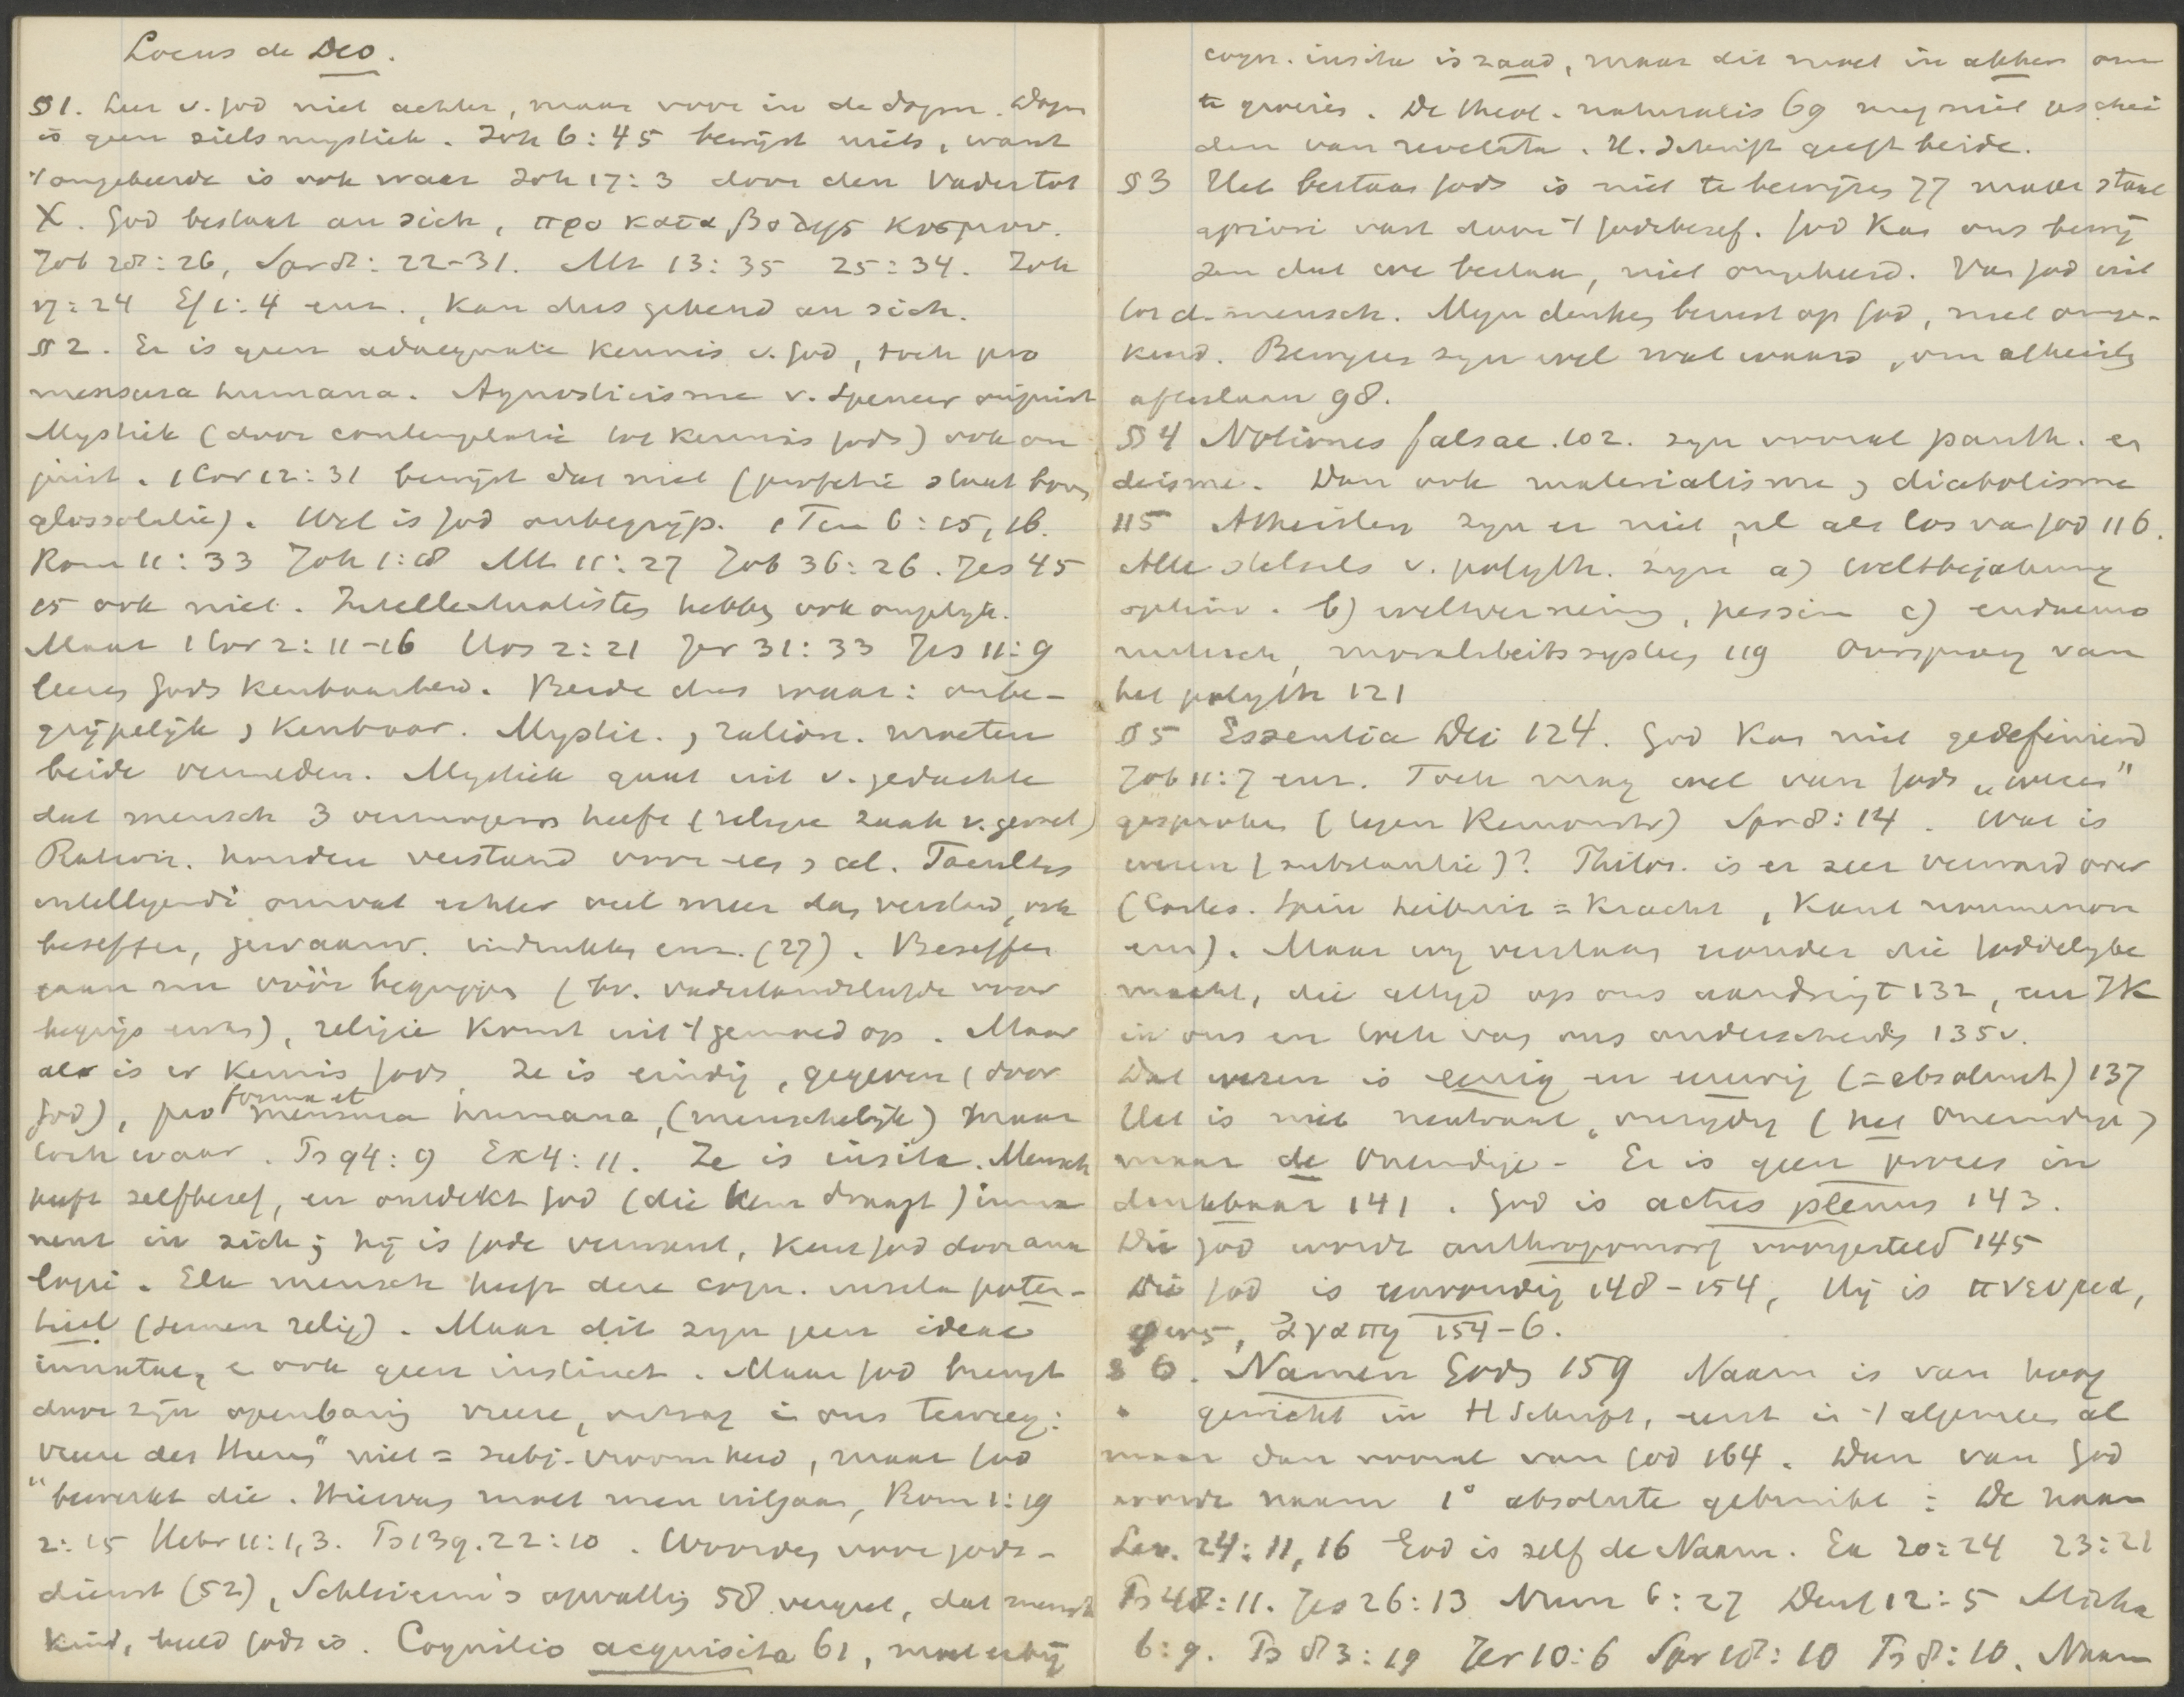 Locus de Deo.
§1. Leer v. God niet achter, maar voor in de dogm. Dogm
is geen zielsmystiek. Joh 6:45 bewijst niets, want
't omgekeerde is ook waar Joh 17:3 door den Vader tot
X. God bestaat an sich, προ καταβολης κοσμου.
Job 28:26, Spr 8:22-31. Mt 13:35 25:34. Joh
17:24 Ef 1:4 enz., kan dus gekend an sich.
§2. Er is geen adaequate kennis v. God, toch pro
mensura humana. Agnosticisme v. Spencer onjuist
Mystiek (door contemplatie tot kennis Gods) ook on
juist. 1 Cor 12:31 bewijst dat niet (profetie staat boven
glossolalie). Wel is God onbegrijp. 1 Tim 6:15, 16.
Rom 11:33 Joh 1:18 Mt 11:27 Job 36:26. Jes 45
15 ook niet. Intellectualisten hebben ook ongelijk.
Maar 1 Cor 2:11-16 Hos 2:21 Jer 31:33 Jes 11:9
leeren Gods kenbaarheid. Beide dus waar: onbe-
grijpelijk, kenbaar. Mystic., ration. moeten
beide vermeden. Mystiek gaat uit v. gedachte
dat mensch 3 vermogens heeft (religie zaak v. gevoel)
Ration. houden verstand voor een, al. Facultas
intelligendi omvat echter veel meer dan verstand, ook
beseffen, gewaarw. indrukken enz. (27). Beseffen
gaan nu vóór begrippen (bv. vaderlandsliefde voor
begrip ervan), religie komt uit 't gemoed op. Maar
als is er kennis Gods, ze is eindig, gegeven (door
God), pro forma et mensura humana, (menschelijk) maar
toch waar. Ps 94:9 Ex 4:11. Ze is insita. Mensch
heeft zelfbesef, en ontdekt God (die hem draagt) imma
nent in zich; hij is Gode verwant, kent God door ana
logie. Elk mensch heeft deze cogn. insita poten-
tieel (semen relig). Maar dit zijn geen ideae
innatae, ook geen instinct. Maar God brengt
door zijn openbaring vreeze, ontzag in ons teweeg:
vreeze des Heeren" niet = subj. vroomheid, maar God
"bewerkt die. Hiervan moet men uitgaan, Rom 1:19
2:15 Hebr 11:1,3. Ps 139. 22:10. Woorden voor gods-
dienst (52), Schleierm's opvatting 58 vergeet, dat mensch
kind, beeld Gods is. Cognitio acquisita 61, moet erbij
cogn. insita is zaad, maar dit moet in akker om
te groeien. De theol. naturalis 69 mag niet geschei
den van revelata. H. Schrift geeft beide.
§3 Het bestaan Gods is niet te bewijzen 77 maar staat
apriori vast door 't Godsbesef. God kan ons bewij
zen dat we bestaan, niet omgekeerd. Van God uit
tot d. mensch. Mijn denken berust op God, niet omge-
keerd. Bewijzen zijn wel wat waard, om atheisten
af te slaan 98.
§4 Notiones falsae. 102. zijn vooral panth. en
deisme. Dan ook materialisme, diabolisme
115 Atheisten zijn er niet, nl als los van God 116.
Alle stelsels v. polyth. zijn a) weltbejahung
optim. b) weltverneing, pessim c) eudaemo
nistisch, moraliteitssysteem 119 Oorsprong van
het polyth 121
§5 Essentia Dei 124. God kan niet gedefinieerd
Job 11:7 enz. Toch mag wel van Gods „wezen"
gesproken (tegen Remonstr) Spr 8:14. Wat is
wezen (substantie)? Philos. is er zeer verward over
(Cartes. Spin Leibniz = kracht, Kant noumenon
enz). Maar wij verstaan eronder die Goddelijke
macht, die altijd op ons aandringt 132, een Ik
in ons en toch van ons onderscheiden 135v.
Dat wezen is eenig en eeuwig (= absoluut) 137
Het is niet neutraal, onzijdig (het Oneindige)
maar de Oneindige. Er is geen proces in
denkbaar 141. God is actus plenus 143.
Die God wordt anthropomorf voorgesteld 145
Die God is eenvoudig 148-154, Hij is πνευμα,
φως, ἀγαπη 154-6.
§6. Namen Gods 159 Naam is van hoog
gewicht in H Schrift, eerst in 't algemeen al
maar dan vooral van God 164. Dan van God
wordt naam 1° absolute gebruikt: De naam
Lev. 24:11,16 God is zelf de Naam. Ex 20:24 23:21
Ps 48:11. Jes 26:13 Num 6:27 Deut 12:5 Micha
6:9. Ps 83:19 Jer 10:6 Spr 18:10 Ps 8:10. Naam